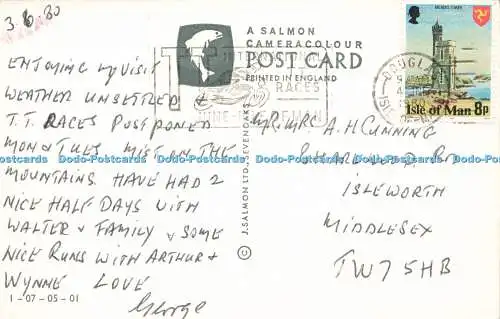 3.6.80
ENJOYING MY VISIT
WEATHER UNSETTLED &
T.T. RACES POSTPONED
MON & TUES MIST ON THE
MOUNTAINS HAVE HAD 2
NICE HALF DAYS WITH
WALTER & FAMILY & SOME
NICE RUNS WITH ARTHUR &
WYNNE LOVE
George
1-07-05-01
A SALMON
CAMERACOLOUR
POST CARD
PRINTED IN ENGLAND
© J. SALMON LTD., SEVENOAKS
RACES
JUNE
DOUGLAS
Isle of Man 8p
MR. MRS A. H CUNNING
RD
ISLEWORTH
MIDDLESEX
TW7 5HB
Dodo-Postcards Dodo-Postcards Dodo-Postcards Dodo-Postcards Dodo-Postcards Dodo-Postcards